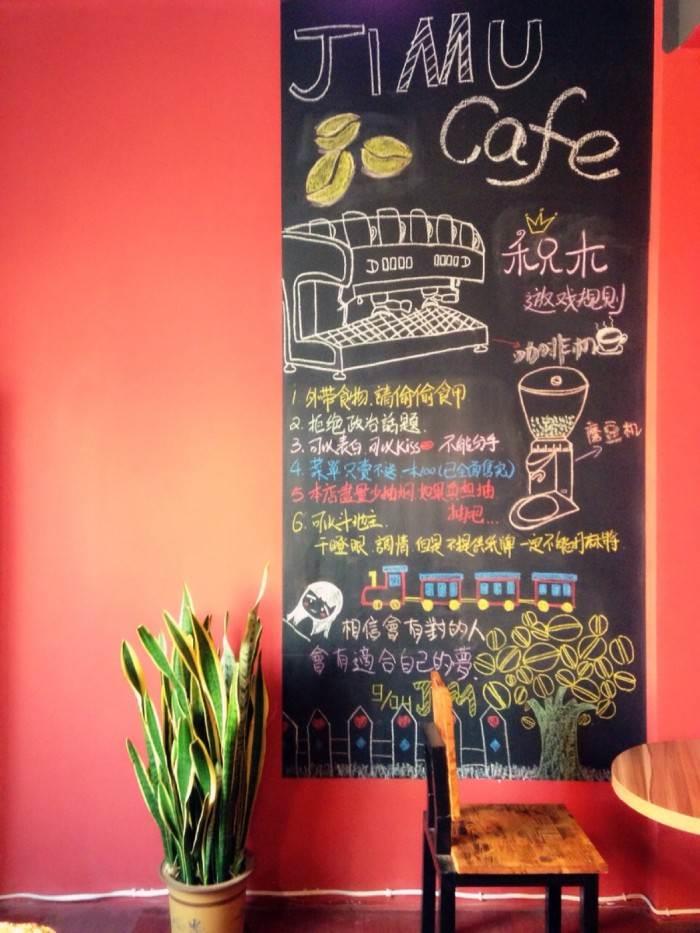 JIMU
Cafe
积木
遊戏规则
咖啡机
磨豆机
1. 外带食物.請偷偷食用
2. 拒绝政治話題.
3. 可以表白.可以Kiss 不能分手
4. 菜單只賣不送 一本100(已全面售完)
5. 本店盡量少抽烟.如果真想抽
抽吧...
6. 可以斗地主.
干瞪眼.調情.但是不提供紙牌 一定不能打麻將
1
相信會有對的人
會有適合自己的夢.
9/04 JIM